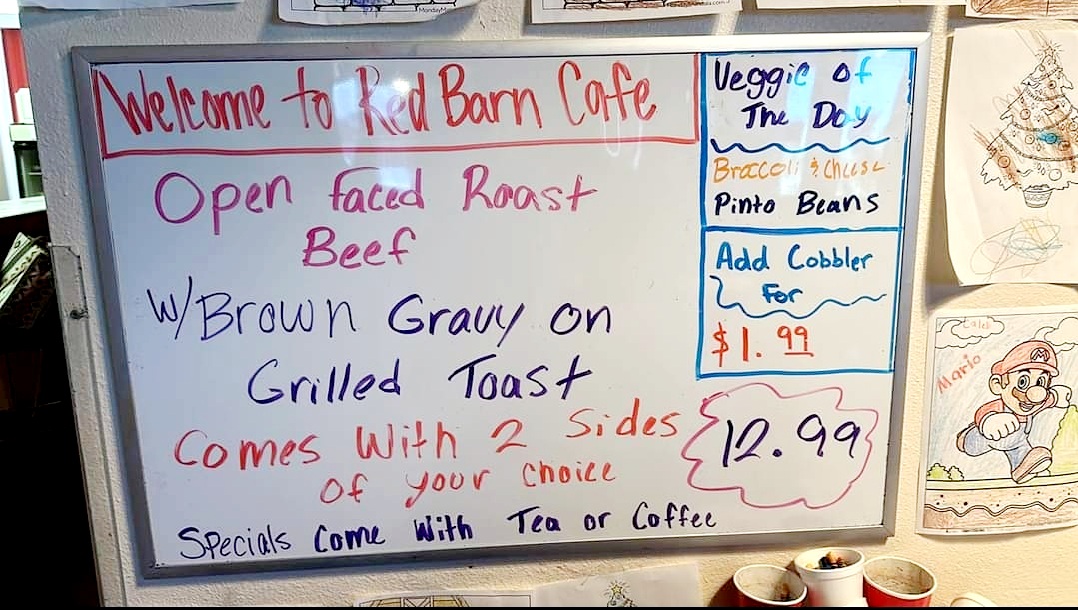 Welcome to Red Barn Cafe
Open faced Roast
Beef
w/Brown Gravy on
Grilled Toast
Comes With 2 Sides
of your choice
Specials Come With Tea or Coffee
Veggie of
The Day
Broccoli & Cheese
Pinto Beans
Add Cobbler
For
$1.99
12.99
Caleb
Mario
M